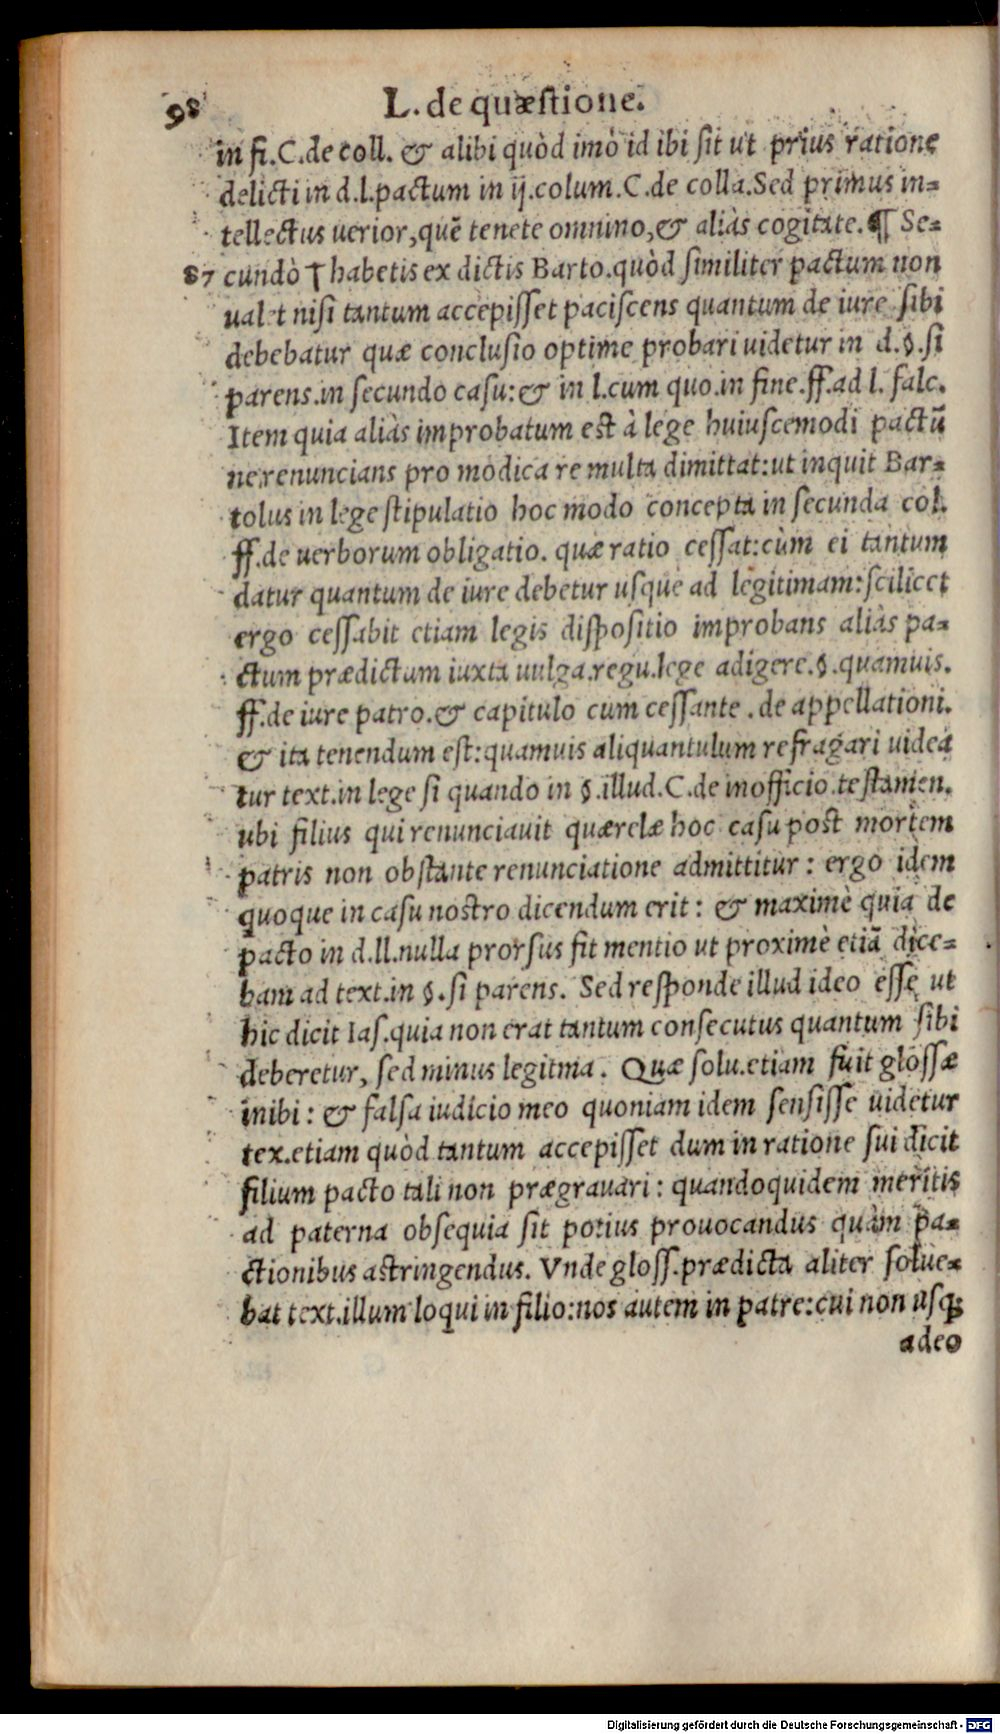 98 L. de quæstione.
in fi. C. de coll. & alibi quòd imò id ibi sit ut prius ratione
delicti in d.l.pactum in ij.colum.C.de colla.Sed primus in=
tellectus uerior,quẽ tenete omnino,& aliàs cogitate.¶ Se=
87 cundò † habetis ex dictis Barto.quòd similiter pactum non
ualet nisi tantum accepisset paciscens quantum de iure sibi
debebatur quæ conclusio optime probari uidetur in d.§.si
parens.in secundo casu:& in l.cum quo.in fine.ff.ad l. falc.
Item quia aliàs improbatum est à lege huiuscemodi pactũ
ne renuncians pro modica re multa dimittat:ut inquit Bar=
tolus in lege stipulatio hoc modo concepta in secunda col.
ff.de uerborum obligatio. quæ ratio cessat:cùm ei tantum
datur quantum de iure debetur usque ad legitimam:scilicet
ergo cessabit etiam legis dispositio improbans aliàs pa=
ctum prædictum iuxta uulga.regu.lege adigere.§.quamuis.
ff.de iure patro.& capitulo cum cessante .de appellationi.
& ita tenendum est:quamuis aliquantulum refragari uidea
tur text.in lege si quando in §.illud.C.de inofficio.testamen.
ubi filius qui renunciauit quærelæ hoc casu post mortem
patris non obstante renunciatione admittitur : ergo idem
quoque in casu nostro dicendum erit : & maximè quia de
pacto in d.ll.nulla prorsus fit mentio ut proximè etiã dice=
bam ad text.in §.si parens. Sed responde illud ideo esse ut
hic dicit Ias.quia non erat tantum consecutus quantum sibi
deberetur, sed minus legitma . Quæ solu.etiam fuit glossæ
inibi : & falsa iudicio meo quoniam idem sensisse uidetur
tex.etiam quòd tantum accepisset dum in ratione sui dicit
filium pacto tali non prægrauari : quandoquidem meritis
ad paterna obsequia sit potius prouocandus quàm pa=
ctionibus astringendus. Vnde gloss.prædicta aliter solue=
bat text.illum loqui in filio:nos autem in patre:cui non usq;
adeo
Digitalisierung gefördert durch die Deutsche Forschungsgemeinschaft - DFG